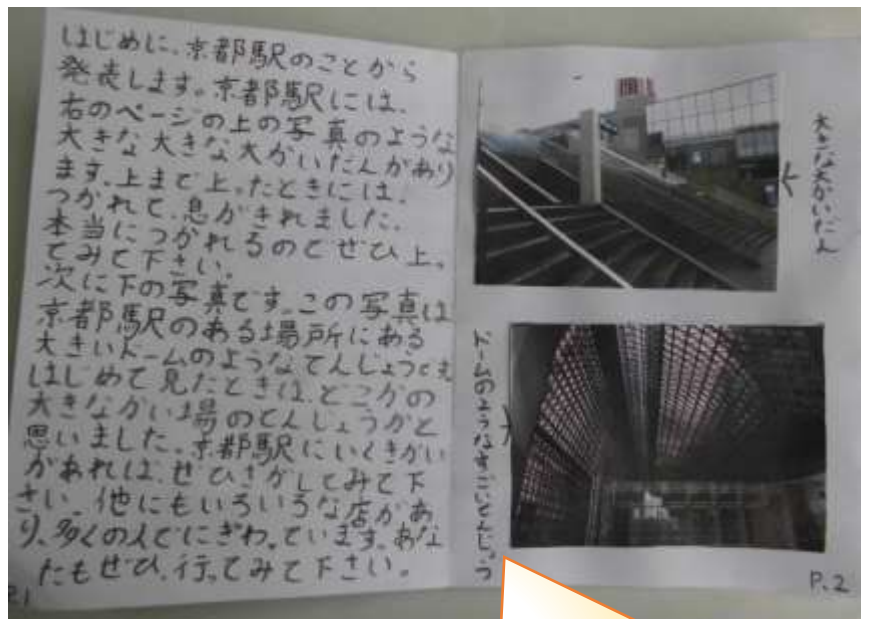 はじめに、京都駅のことから
発表します。京都駅には、
右のページの上の写真のような
大きな大きな大かいだんがあり
ます。上まで上ったときには、
つかれて、息がきれました。
本当につかれるのでぜひ上っ
てみて下さい。
次に下の写真です。この写真は
京都駅のある場所にある
大きいドームのようなてんじょうです
はじめて見たときは、どこかの
大きなかい場のてんじょうかと
思いました。京都駅にいくきかい
があれば、ぜひさがしてみて下
さい。他にもいろいろな店があ
り、多くの人でにぎわっています。あな
たもぜひ、行ってみて下さい。
P.1
大きな大かいだん
ドームのようなすごいてんじょう
P.2